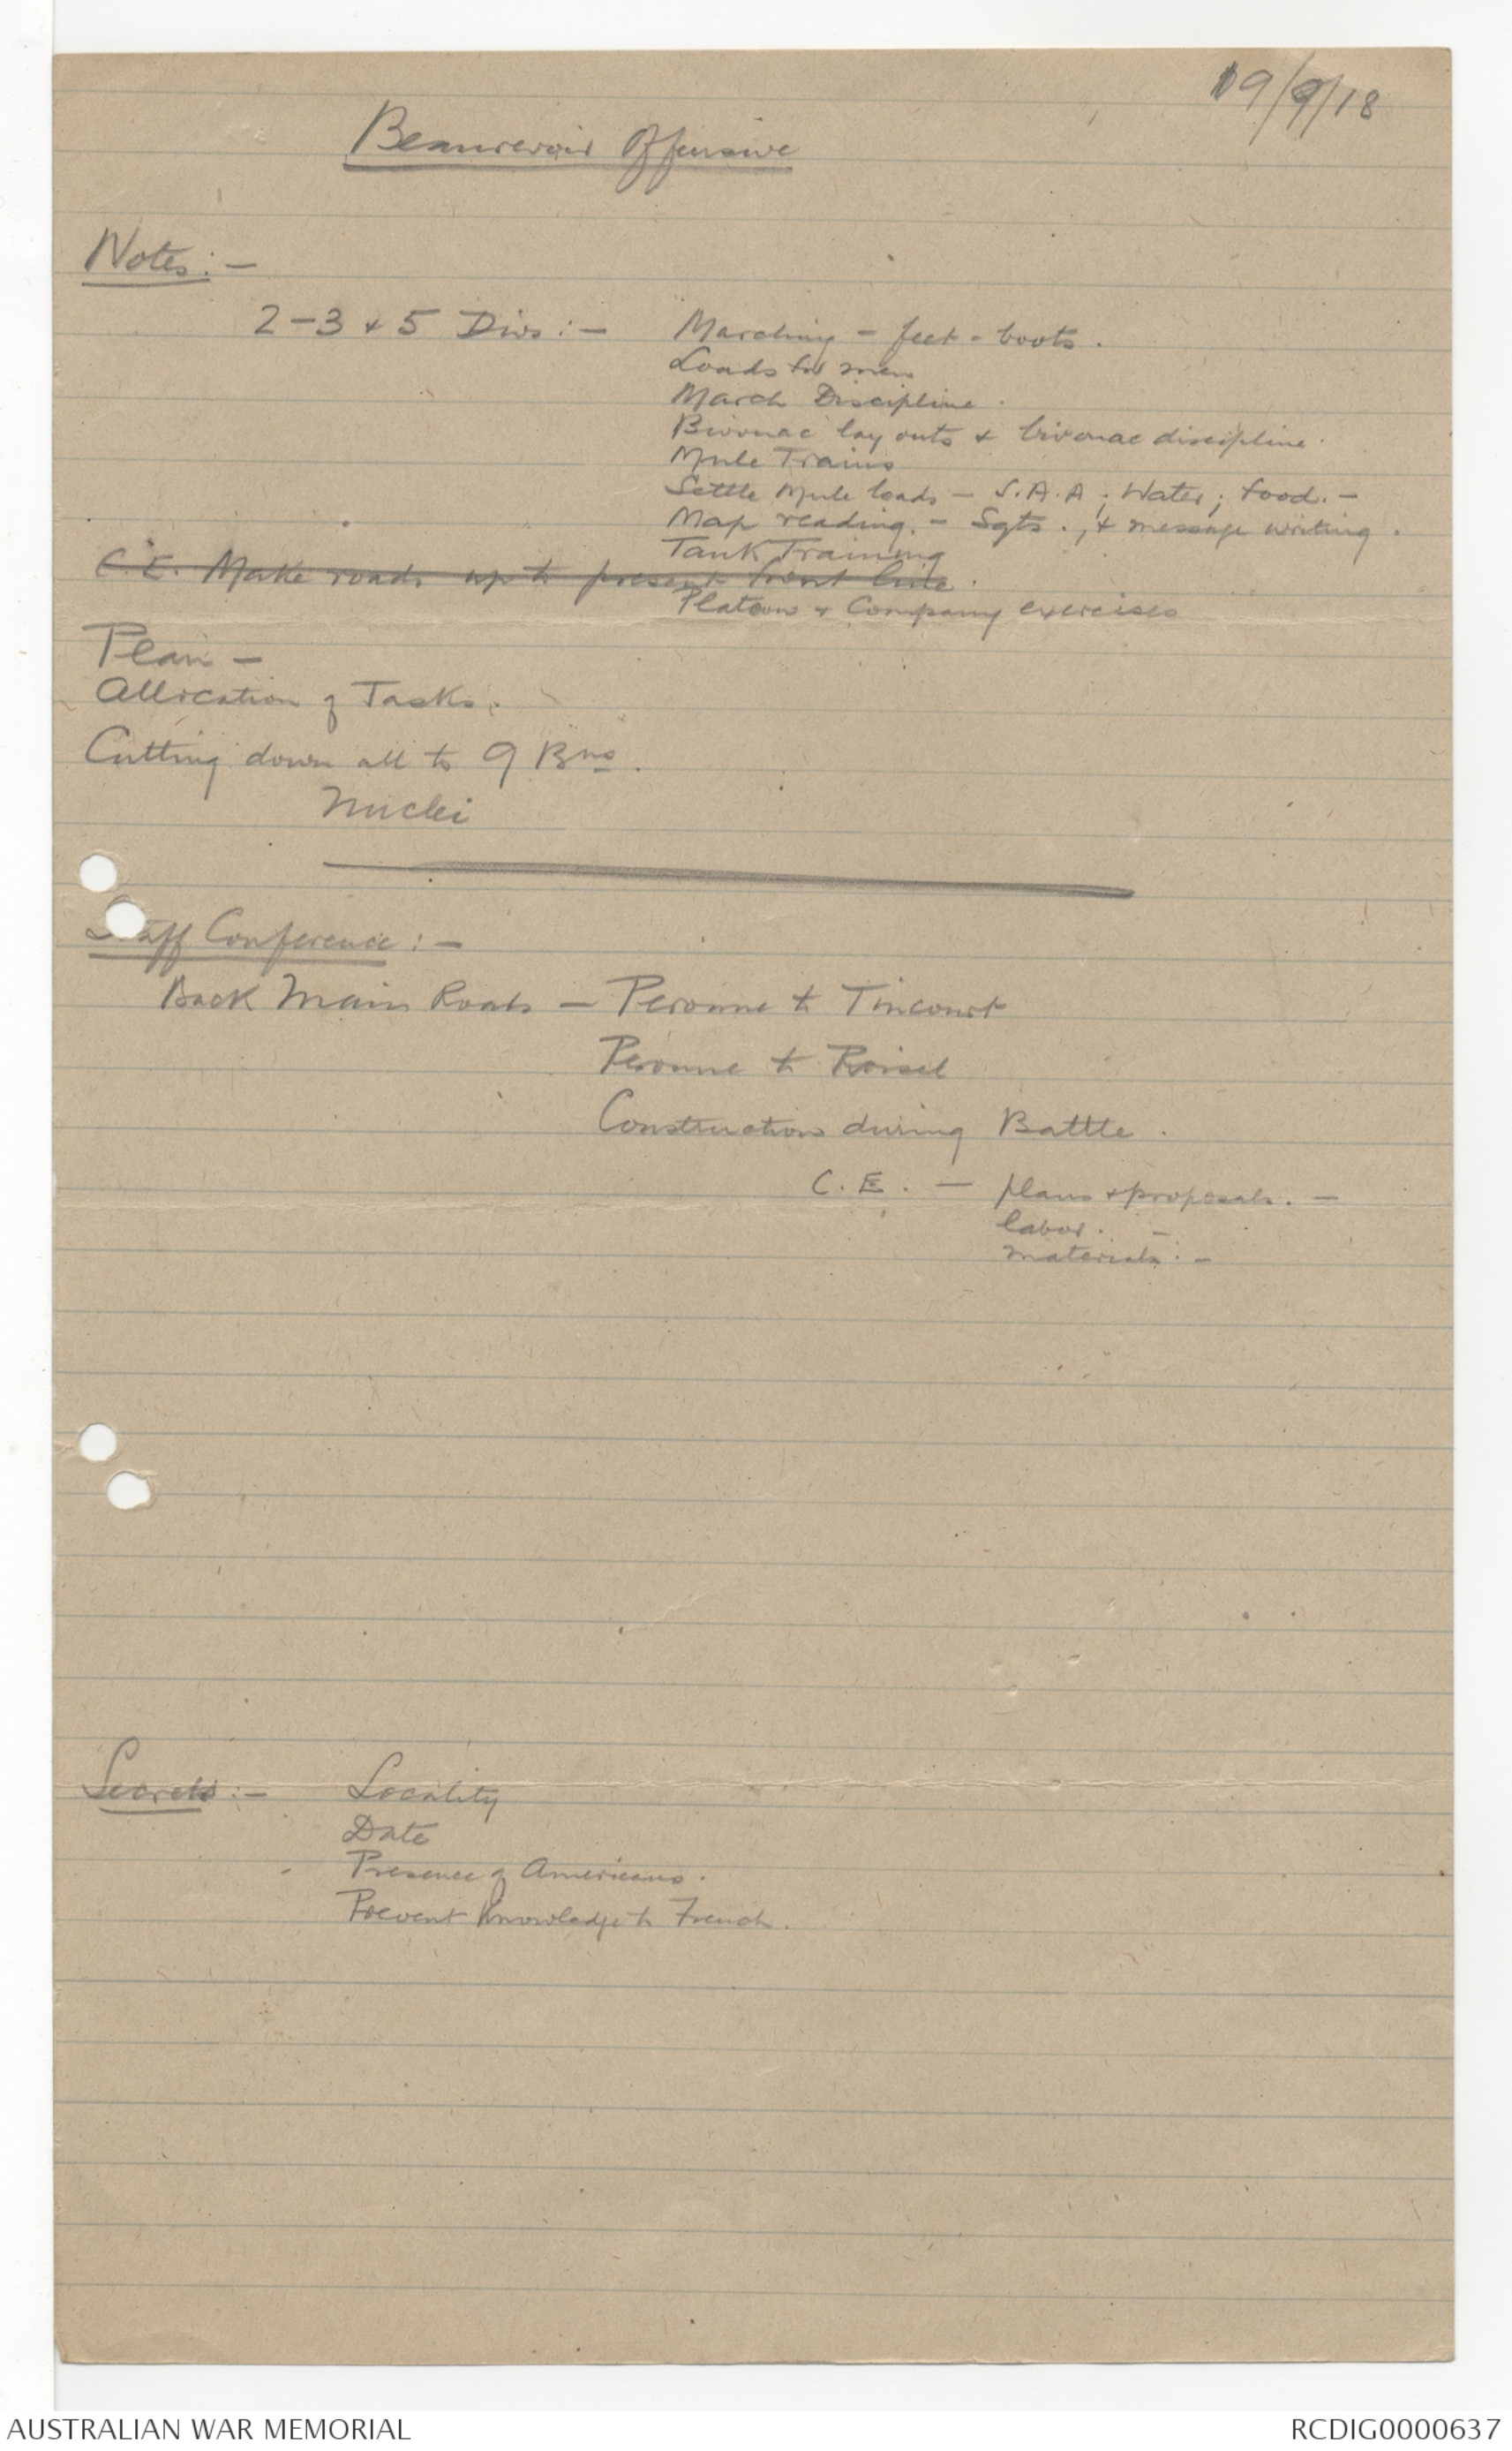 19/9/18
Beaurevoir Offensive
Notes:-
2-3 & 5 Divs:- Marching - feet - boots.
Loads for men
March Discipline.
Bivouac lay outs & bivouac discipline.
Mule Trains
Settle Mule loads - S.A.A; Water; food. -
Map reading. - Sgts., & message writing.
Tank Training
C.E. Make roads up to present front line.
Platoon & Company exercises
Plan -
Allocation of Tasks.
Cutting down all to 9 Bns.
Nuclei
Staff Conference:-
Back Main Roads - Peronne to Tincourt
Peronne to Roisel
Construction during Battle.
C.E. - plans & proposals. -
labor. -
materials: -
Secrets:- Locality
Date
Presence of Americans.
Prevent knowledge to French.
AUSTRALIAN WAR MEMORIAL
RCDIG0000637